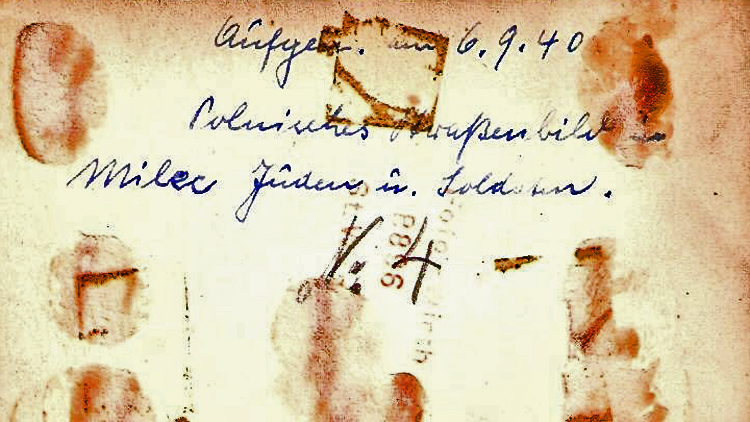 Aufgen. am 6.9.40
Polnisches Straßenbild in
Milec Juden u. Soldaten.
N: 4 –
P896